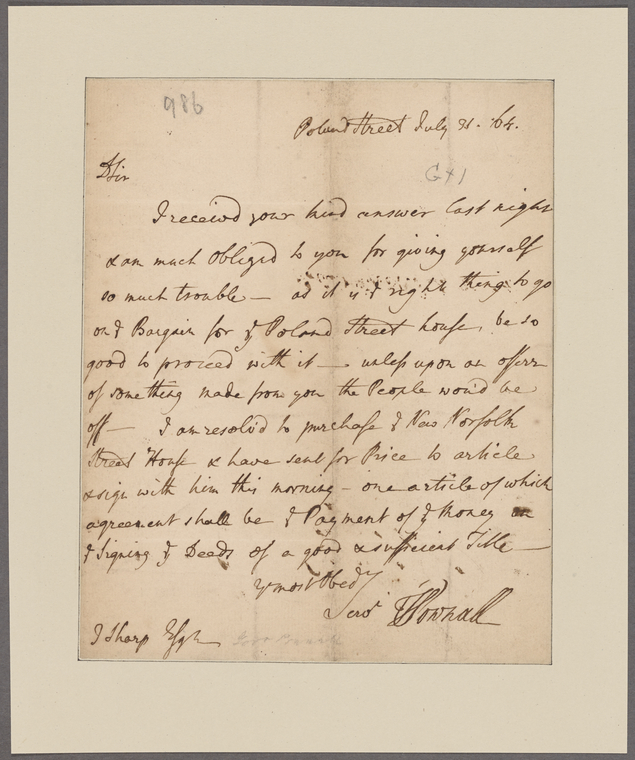 986
Poland Street July 21. 64.
DSir
G41
I receiv'd your kind answer last night
& am much Obliged to you for giving yourself
so much trouble — as it is ye right thing to go
on ye Bargain for ye Poland Street house, be so
good to proceed with it — unless upon an offer
of something made from you the People wou'd be
off — I am resolv'd to purchase ye New Norfolk
Street House & have sent for Price to article
& sign with him this morning — one article of which
agreement shall be ye Payment of ye Money on
ye Signing ye Deeds of a good & sufficient Title —
yr most Obed
Serv T Pownall
J Sharp Esqr